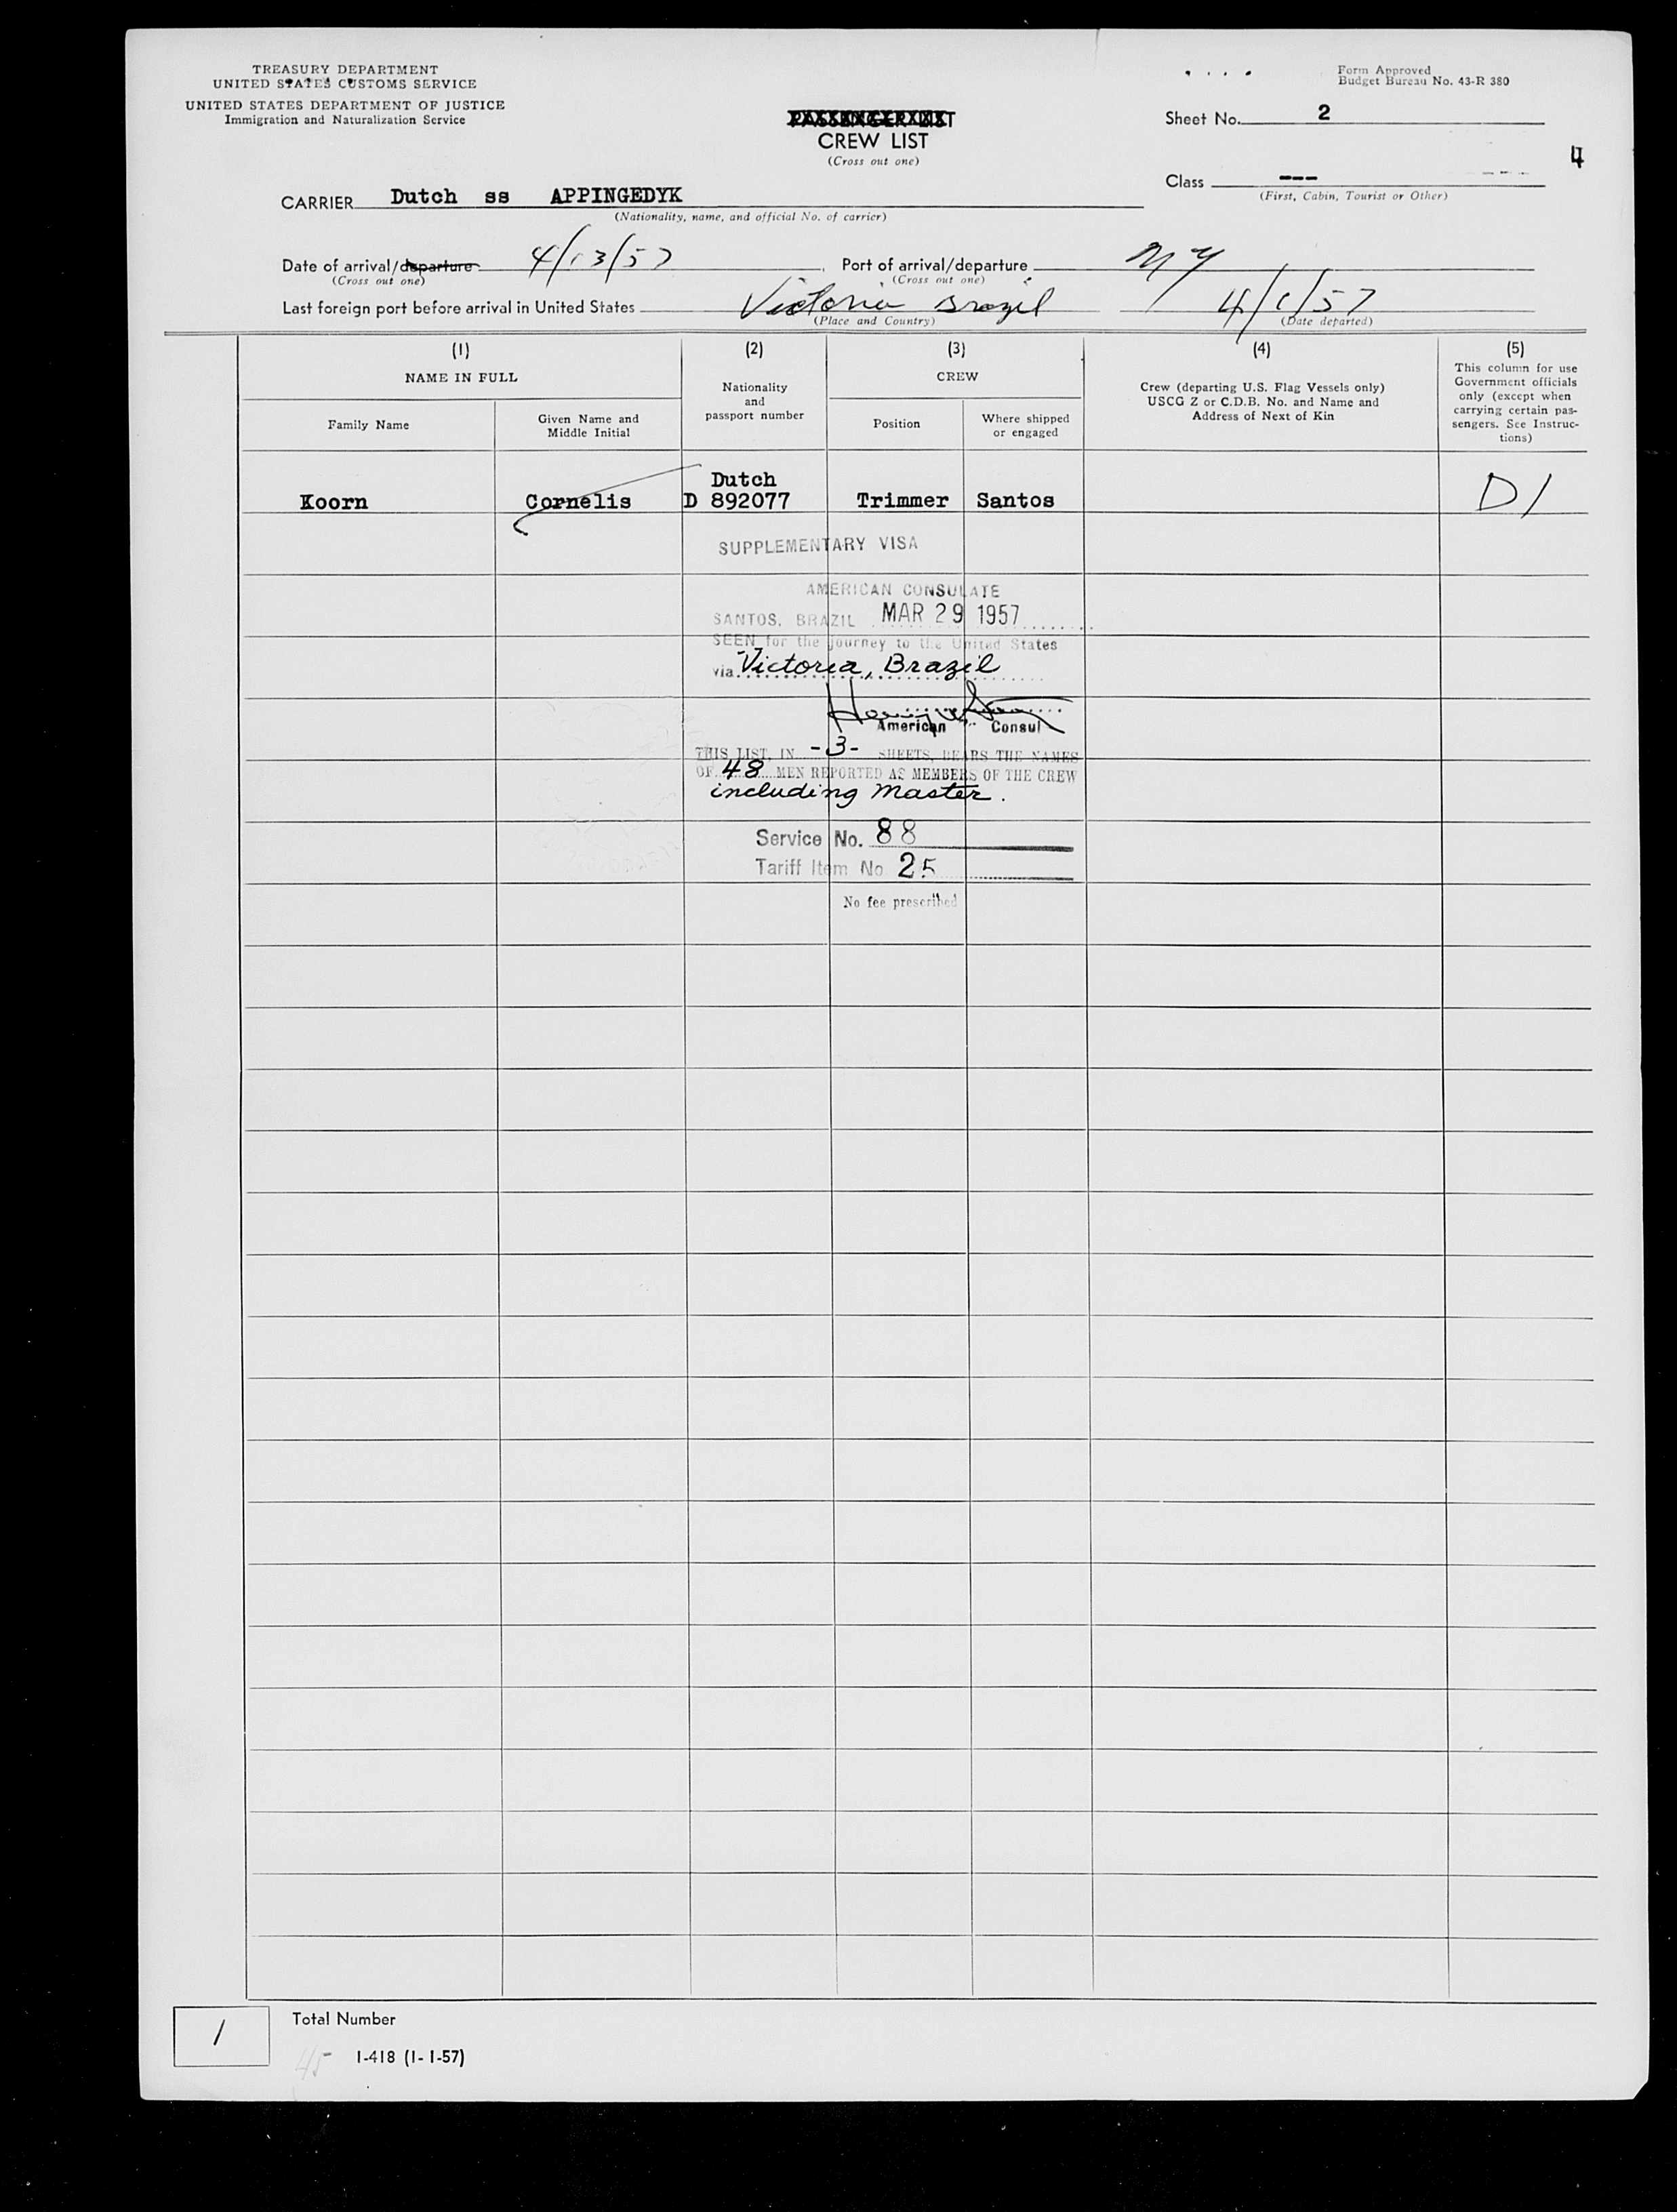 TREASURY DEPARTMENT
UNITED STATES CUSTOMS SERVICE
UNITED STATES DEPARTMENT OF JUSTICE
Immigration and Naturalization Service
Form Approved
Budget Bureau No. 43-R 380
PASSENGER LIST
CREW LIST
(Cross out one)
Sheet No. 2
4
Class ---
(First, Cabin, Tourist or Other)
CARRIER Dutch ss APPINGEDYK
(Nationality, name, and official No. of carrier)
Date of arrival/departure 4/13/57
(Cross out one)
Port of arrival/departure NY
(Cross out one)
Last foreign port before arrival in United States Victoria Brazil 4/1/57
(Place and Country) (Date departed)
(1) (2) (3) (4) (5)
NAME IN FULL
Family Name
Given Name and
Middle Initial
Nationality
and
passport number
CREW
Position
Where shipped
or engaged
Crew (departing U.S. Flag Vessels only)
USCG Z or C.D.B. No. and Name and
Address of Next of Kin
This column for use
Government officials
only (except when
carrying certain pas-
sengers. See Instruc-
tions)
Dutch
Koorn Cornelis D 892077 Trimmer Santos D1
SUPPLEMENTARY VISA
AMERICAN CONSULATE
SANTOS, BRAZIL MAR 29 1957
SEEN for the journey to the United States
via Victoria, Brazil
American Consul
THIS LIST, IN -3- SHEETS, BEARS THE NAMES
OF 48 MEN REPORTED AS MEMBERS OF THE CREW
including Master.
Service No. 88
Tariff Item No 25
No fee prescribed
1 Total Number
45 I-418 (1-1-57)